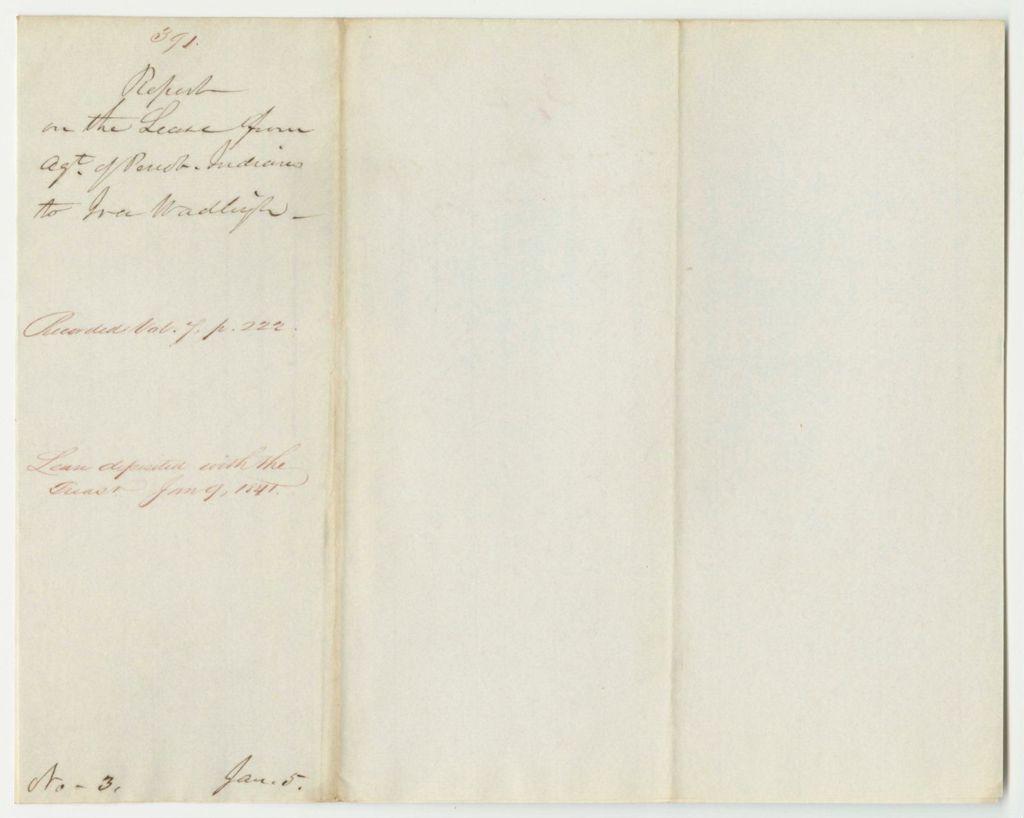 391.
Report
on the Lease from
Agt. of Penob. Indians
to Ira Wadleigh –
Recorded Vol. 7. p. 222.
Lease deposited with the
Treasr Jan 9, 1841.
No – 3.
Jan. 5.